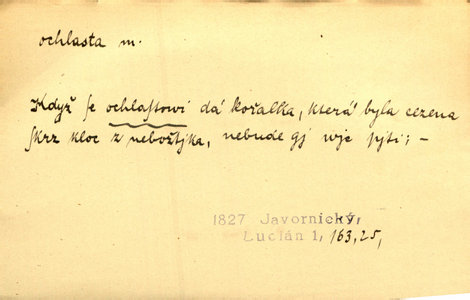 ochlasta m.
Když se ochlastowi dá kořalka, která byla cezena
skrz kloc z nebožtjka, nebude gj wje pjti; –
1827 Javornický,
Lucián 1, 163,25,